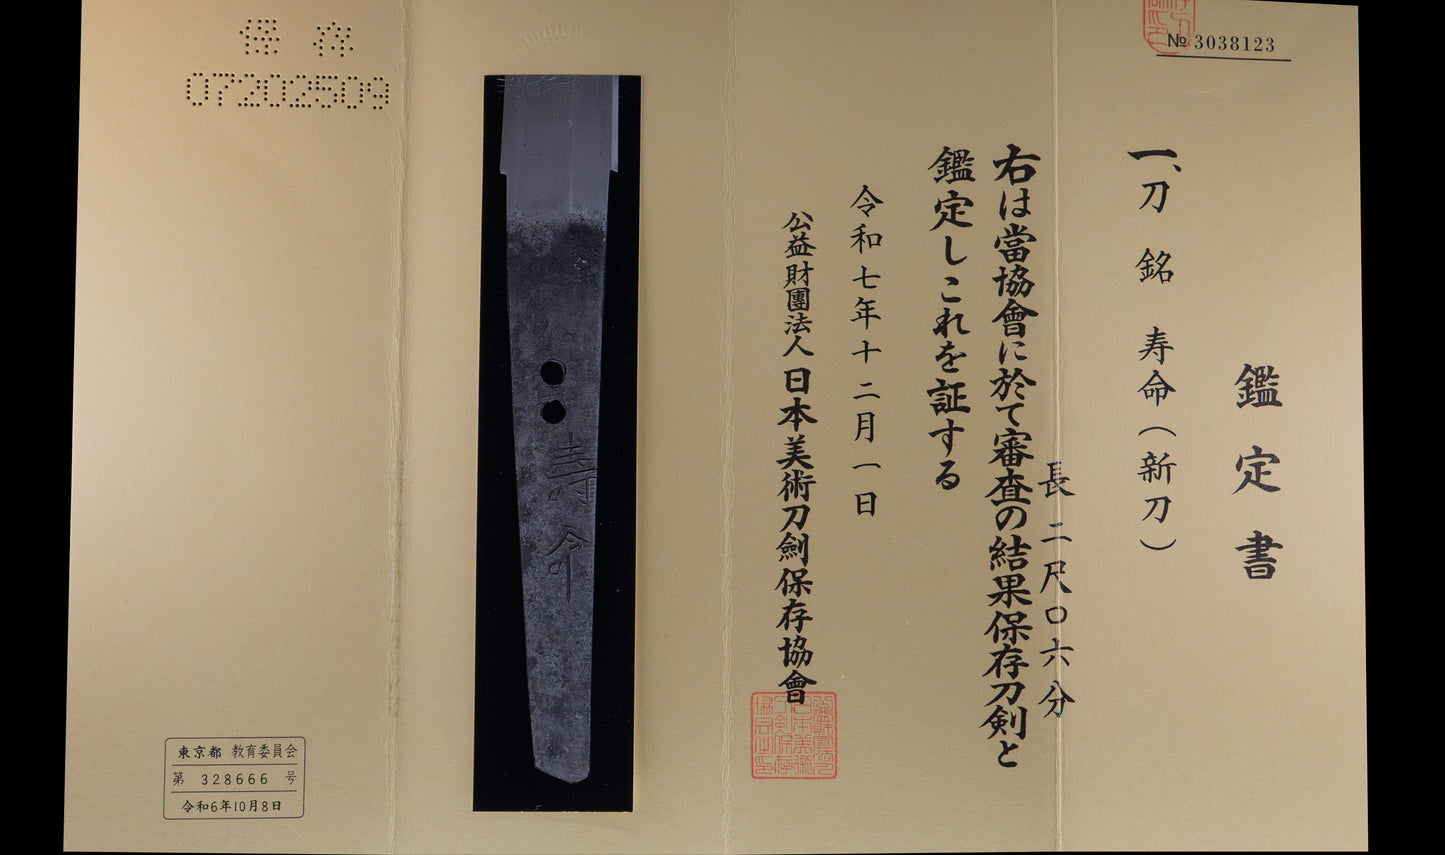 № 3038123
鑑定書
一、刀 銘 寿命(新刀)
長 二尺〇六分
右は當協會に於て審査の結果保存刀剣と
鑑定しこれを証する
令和七年十二月一日
公益財團法人日本美術刀劍保存協會
壽命
保存
07202509
東京都 教育委員会
第 328666 号
令和6年10月8日